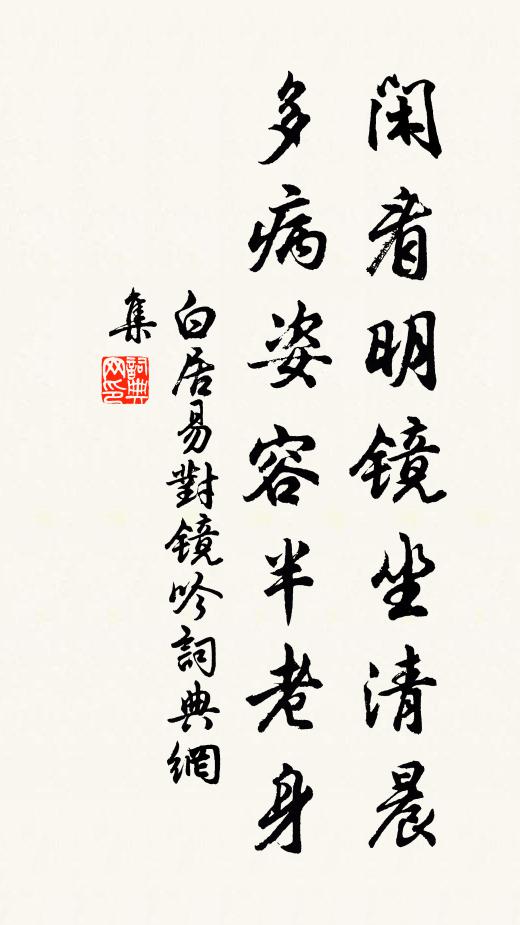 闲看明镜坐清晨
多病姿容半老身
白居易對镜吟詞典網
集
詞典网印